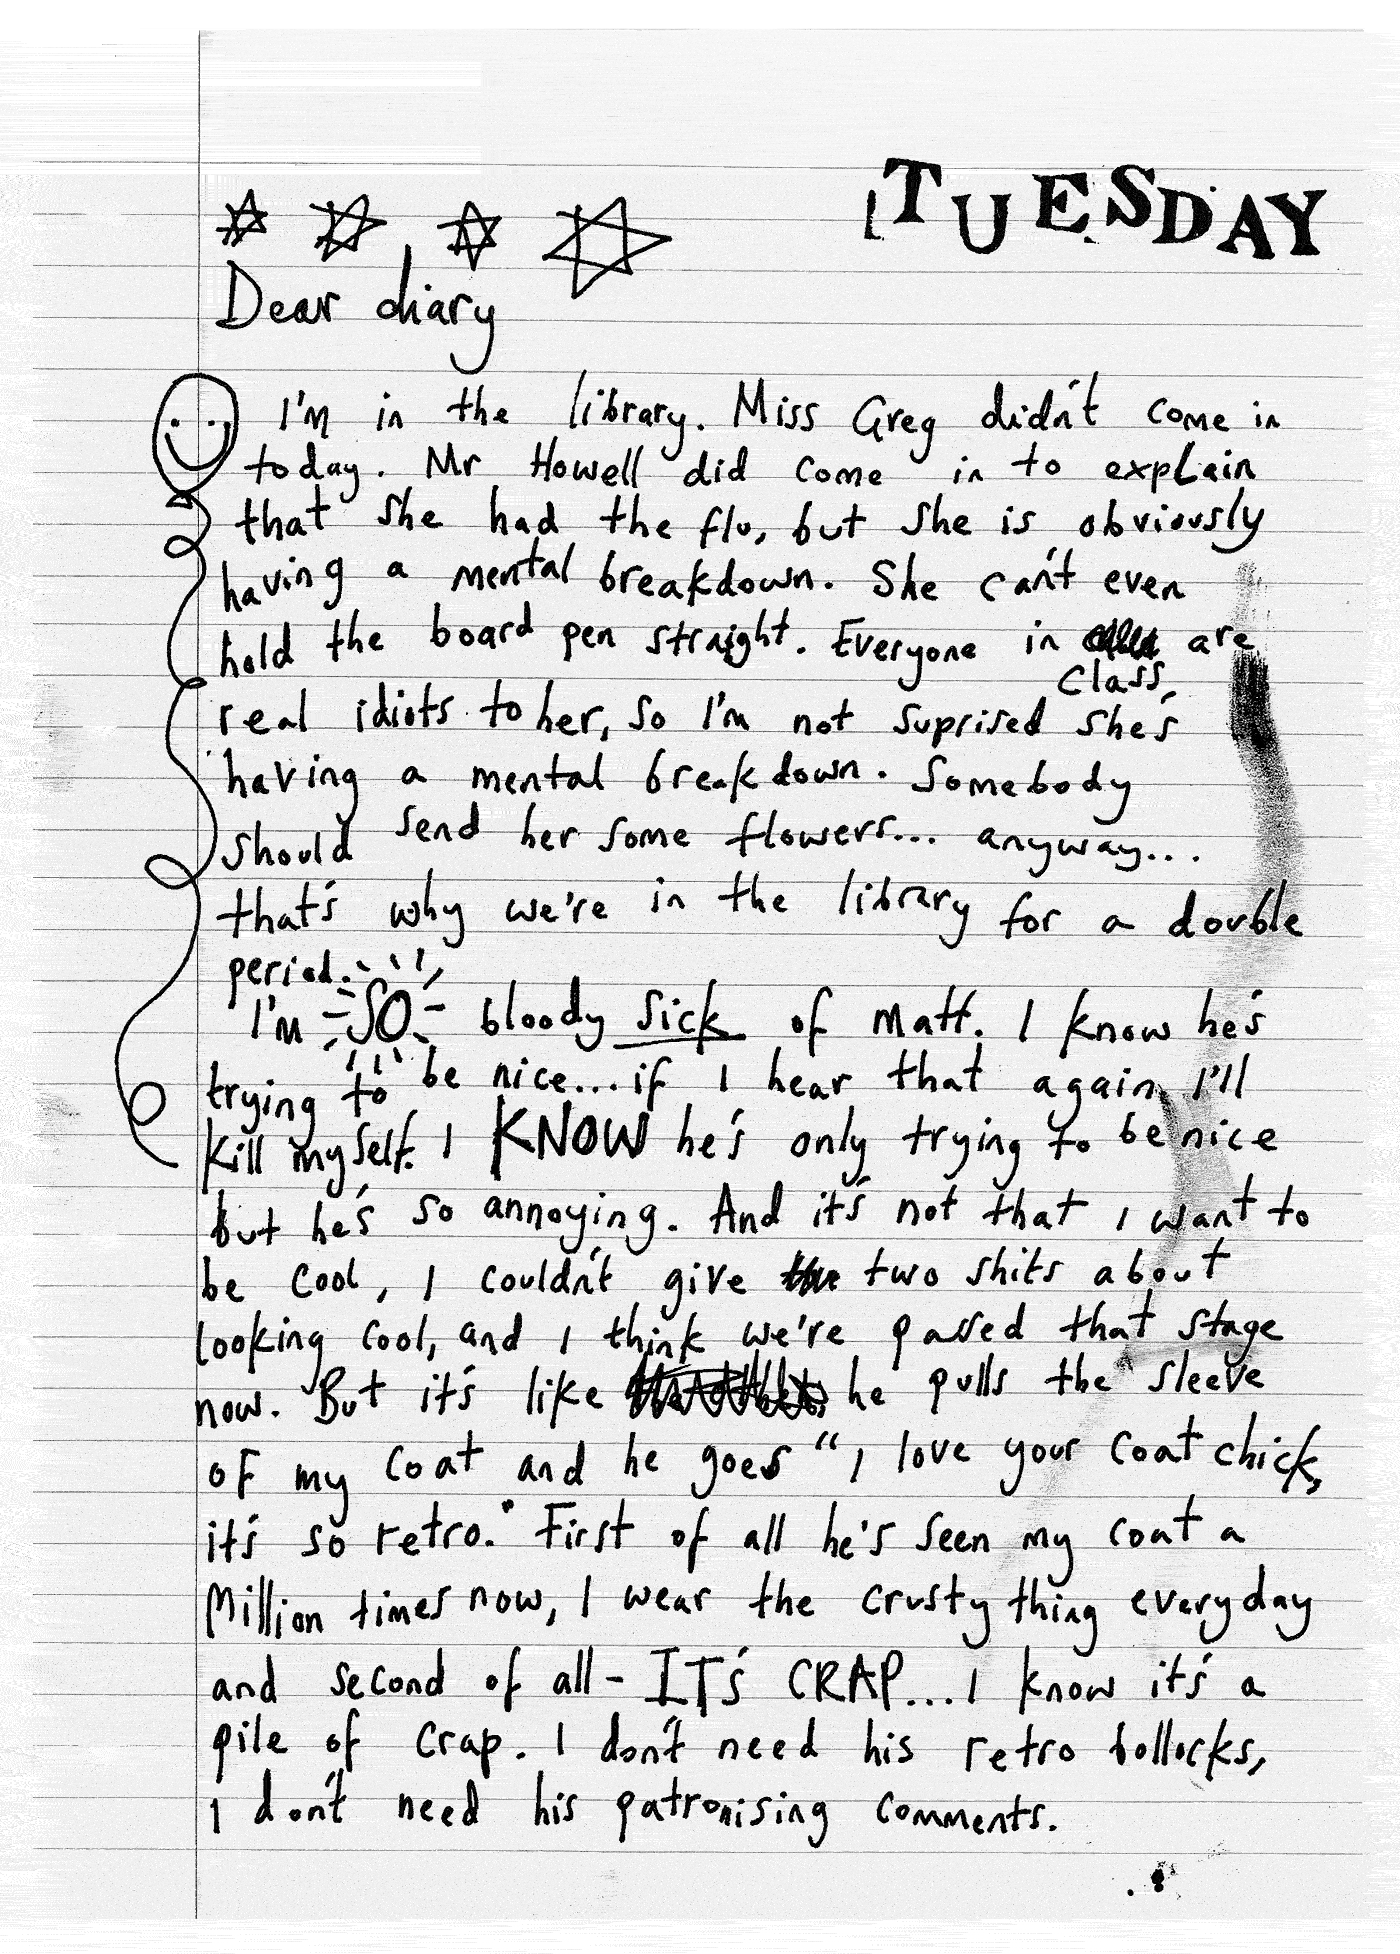 TUESDAY
Dear diary
I'm in the library. Miss Greg didn't come in
today. Mr Howell did come in to explain
that she had the flu, but she is obviously
having a mental breakdown. She can't even
hold the board pen straight. Everyone in are
class,
real idiots to her, so I'm not suprised she's
having a mental breakdown. Somebody
should send her some flowers... anyway...
that's why we're in the library for a double
period.
I'm SO bloody sick of Matt. I know he's
trying to be nice...if I hear that again I'll
kill myself. I KNOW he's only trying to be nice
but he's so annoying. And it's not that I want to
be cool, I couldn't give two shits about
looking cool, and I think we're passed that stage
now. But it's like he pulls the sleeve
of my coat and he goes "I love your coat chick,
it's so retro." First of all he's seen my coat a
million times now, I wear the crusty thing everyday
and second of all - IT's CRAP...I know it's a
pile of crap. I don't need his retro bollocks,
I don't need his patronising comments.